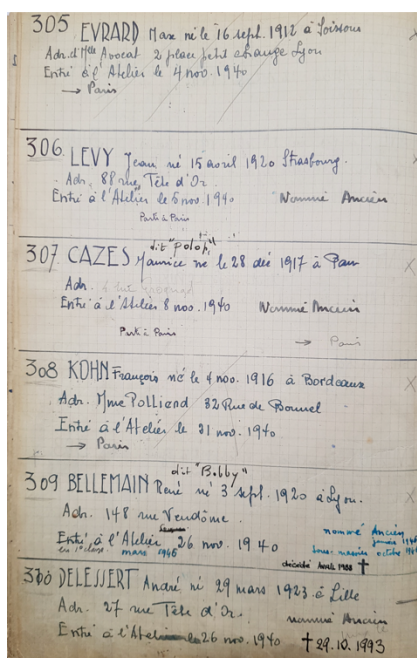 305 EVRARD Max né le 16 sept. 1912 à Soissons
Adr. Mlle Avocat 2 place petit change Lyon
Entré à l'Atelier le 4 nov. 1940
→ Paris
306 LEVY Jean né 15 avril 1920 Strasbourg.
Adr. 88 rue Tête d'Or
Entré à l'Atelier le 5 nov. 1940 Nommé Ancien
Parti à Paris
dit "Polop"
307 CAZES Maurice né le 28 déc 1917 à Pau
Adr.
Entré à l'Atelier 8 nov. 1940 Nommé Ancien
Parti à Paris → Paris
308 KOHN François né le 4 nov. 1916 à Bordeaux
Adr. Mme Polliend 32 Rue de Bonnel
Entré à l'Atelier le 21 nov. 1940
→ Paris
dit "Bobby"
309 BELLEMAIN René né 3 sept. 1920 à Lyon.
Adr. 148 rue Vendôme.
nommé Ancien
Entré à l'Atelier 26 nov. 1940
en 1e classe. mars 1946
décédé Avril 1988 †
310 DELESSERT André né 29 mars 1923 à Lille
Adr. 27 rue Tête d'Or. nommé Ancien
Entré à l'Atelier 26 nov. 1940 † 29.10.1993